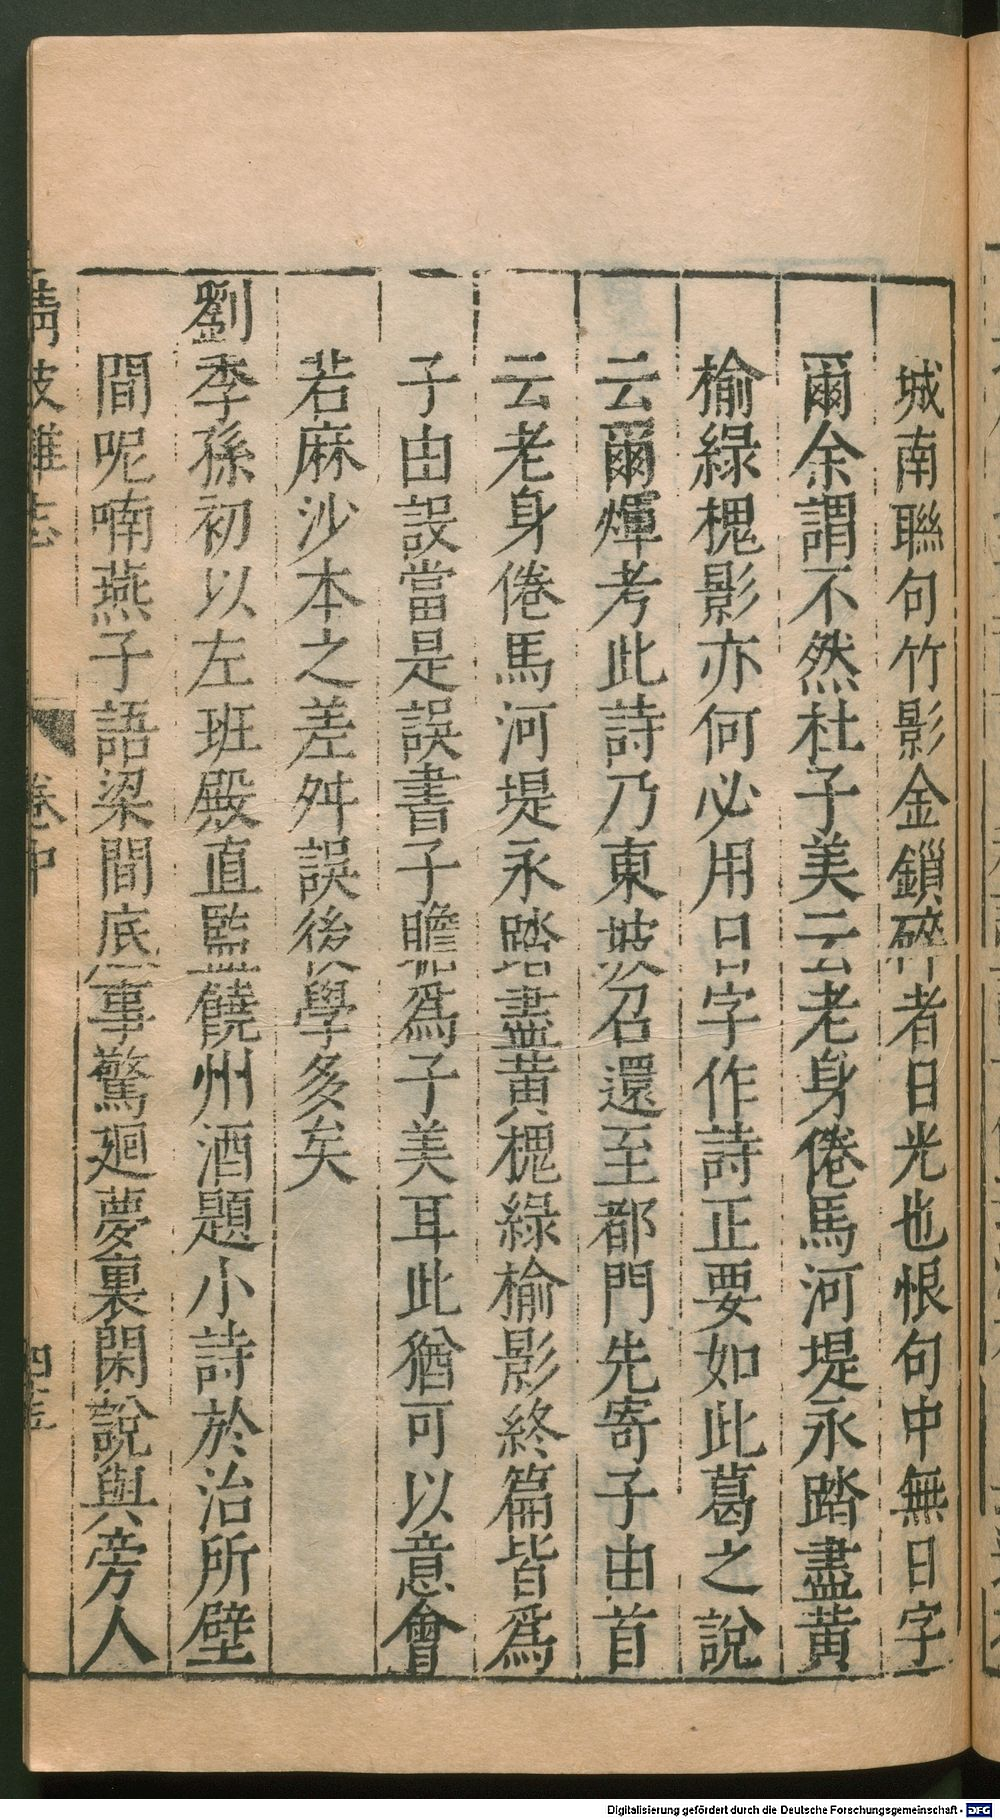 城南聯句竹影金鎖碎者日光也恨句中無日字
爾余謂不然杜子美云老身倦馬河堤永踏盡黃
榆綠槐影亦何必用日字作詩正要如此葛之說
云爾煇考此詩乃東坡召還至都門先寄子由首
云老身倦馬河堤永踏盡黃槐綠榆影終篇皆爲
子由設當是誤書子瞻爲子美耳此猶可以意會
若麻沙本之差舛誤後學多矣
劉季孫初以左班殿直監饒州酒題小詩於治所壁
間呢喃燕子語梁間底事驚廻夢裏閑說與旁人
清波雜志
卷中
四五
Digitalisierung gefördert durch die Deutsche Forschungsgemeinschaft - DFG